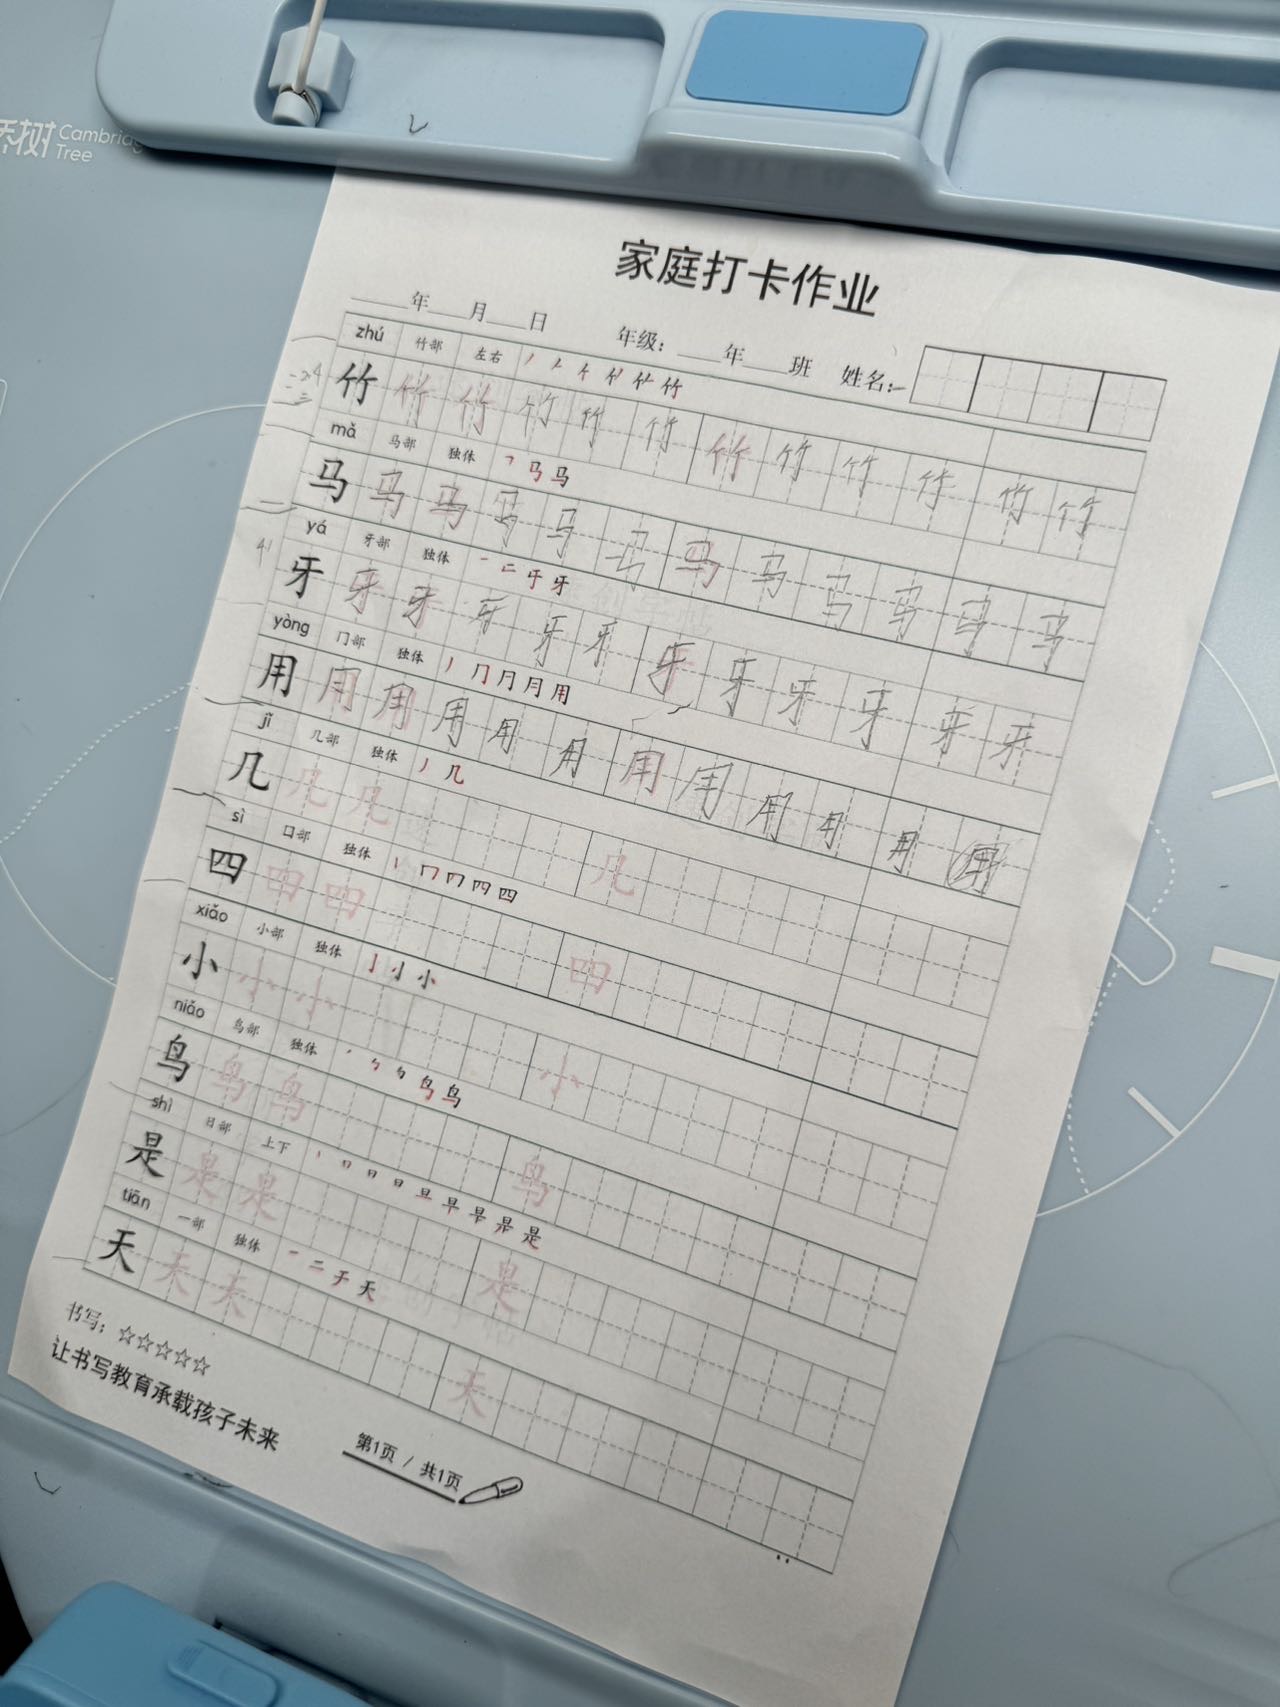 桥树 Cambridge Tree
家庭打卡作业
年 月 日 年级： 年 班 姓名：
zhú 竹部 左右 竹
竹 竹 竹 竹 竹 竹 竹 竹 竹 竹 竹 竹
mǎ 马部 独体 ㇕ 马 马
马 马 马 马 马 马 马 马 马 马 马 马
yá 牙部 独体 一 二 牙 牙
牙 牙 牙 牙 牙 牙 牙 牙 牙 牙 牙 牙
yòng 冂部 独体 丿 冂 月 月 用
用 用 用 用 用 用 用 用 用 用 用 用
jǐ 几部 独体 丿 几
几 几 几 几
sì 口部 独体 丨 冂 四 四
四 四 四 四
xiǎo 小部 独体 亅 小
小 小 小 小
niǎo 鸟部 独体 鸟 鸟
鸟 鸟 鸟 鸟
shì 日部 上下 丨 日 日 旦 早 是
是 是 是 是
tiān 一部 独体 一 二 于 天
天 天 天 天
书写：☆☆☆☆☆
让书写教育承载孩子未来
第1页 / 共1页